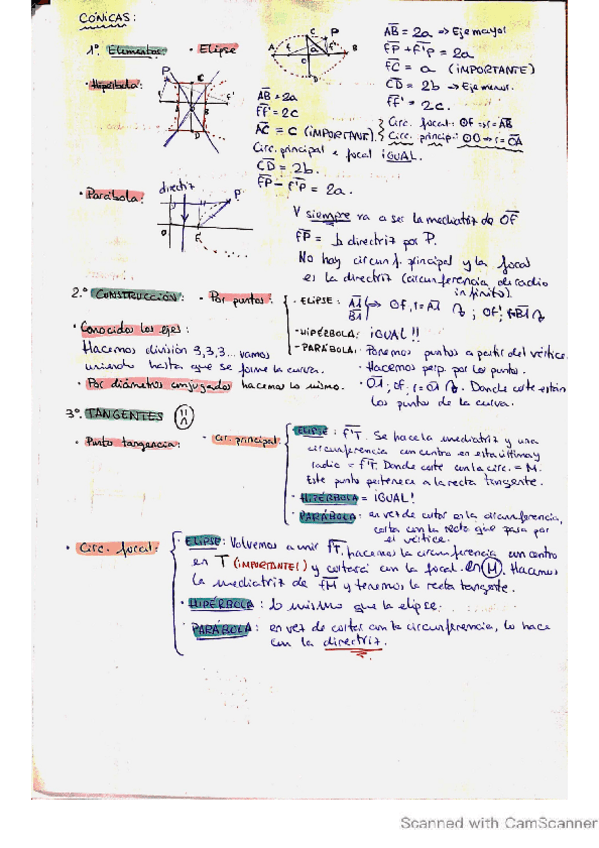 CÓNICAS:
1º Elementos: • Elipse
A B C D F F' P a
AB = 2a => Eje mayor
FP + F'P = 2a
FC = a (IMPORTANTE)
CD = 2b -> Eje menor.
FF' = 2c.
Circ. focal: OF => r = AB
Circ. princip: OO => r = OA
• Hipérbola:
AB = 2a
FF' = 2c
AC = c (IMPORTANTE).
Circ. principal e focal IGUAL.
CD = 2b.
FP - F'P = 2a.
• Parábola: directriz
V siempre va a ser la mediatriz de OF
FP = b directriz por P.
No hay circunf. principal y la focal
es la directriz (circunferencia de radio
infinito).
2.º CONSTRUCCIÓN: • Por puntos:
• ELIPSE:
• Conocidos los ejes:
• HIPÉRBOLA: ¡GUAL!!
Hacemos división 3,3,3... vamos
uniendo hasta que se forme la curva.
• PARÁBOLA: Ponemos puntos a partir del vértice.
• Hacemos perp. por los puntos.
• Por diámetros conjugados hacemos lo mismo.
Donde corte están
los puntos de la curva.
3º. TANGENTES
• Punto tangencia: • Cir. principal
ELIPSE: F'T. Se hace la mediatriz y una
circunferencia con centro en esta última y
radio = F'T. Donde corte con la circ. = M.
Este punto pertenece a la recta tangente.
• HIPÉRBOLA = ¡GUAL!
• PARÁBOLA: en vez de cortar en la circunferencia,
corta con la recta que pasa por
el vértice.
• Circ. focal:
• ELIPSE: Volvemos a unir FT. hacemos la circunferencia con centro
en T (IMPORTANTE!) y cortará con la focal en M. Hacemos
la mediatriz de FM y tenemos la recta tangente.
• HIPÉRBOLA: lo mismo que la elipse.
• PARÁBOLA: en vez de cortar con la circunferencia, lo hace
con la directriz.
Scanned with CamScanner